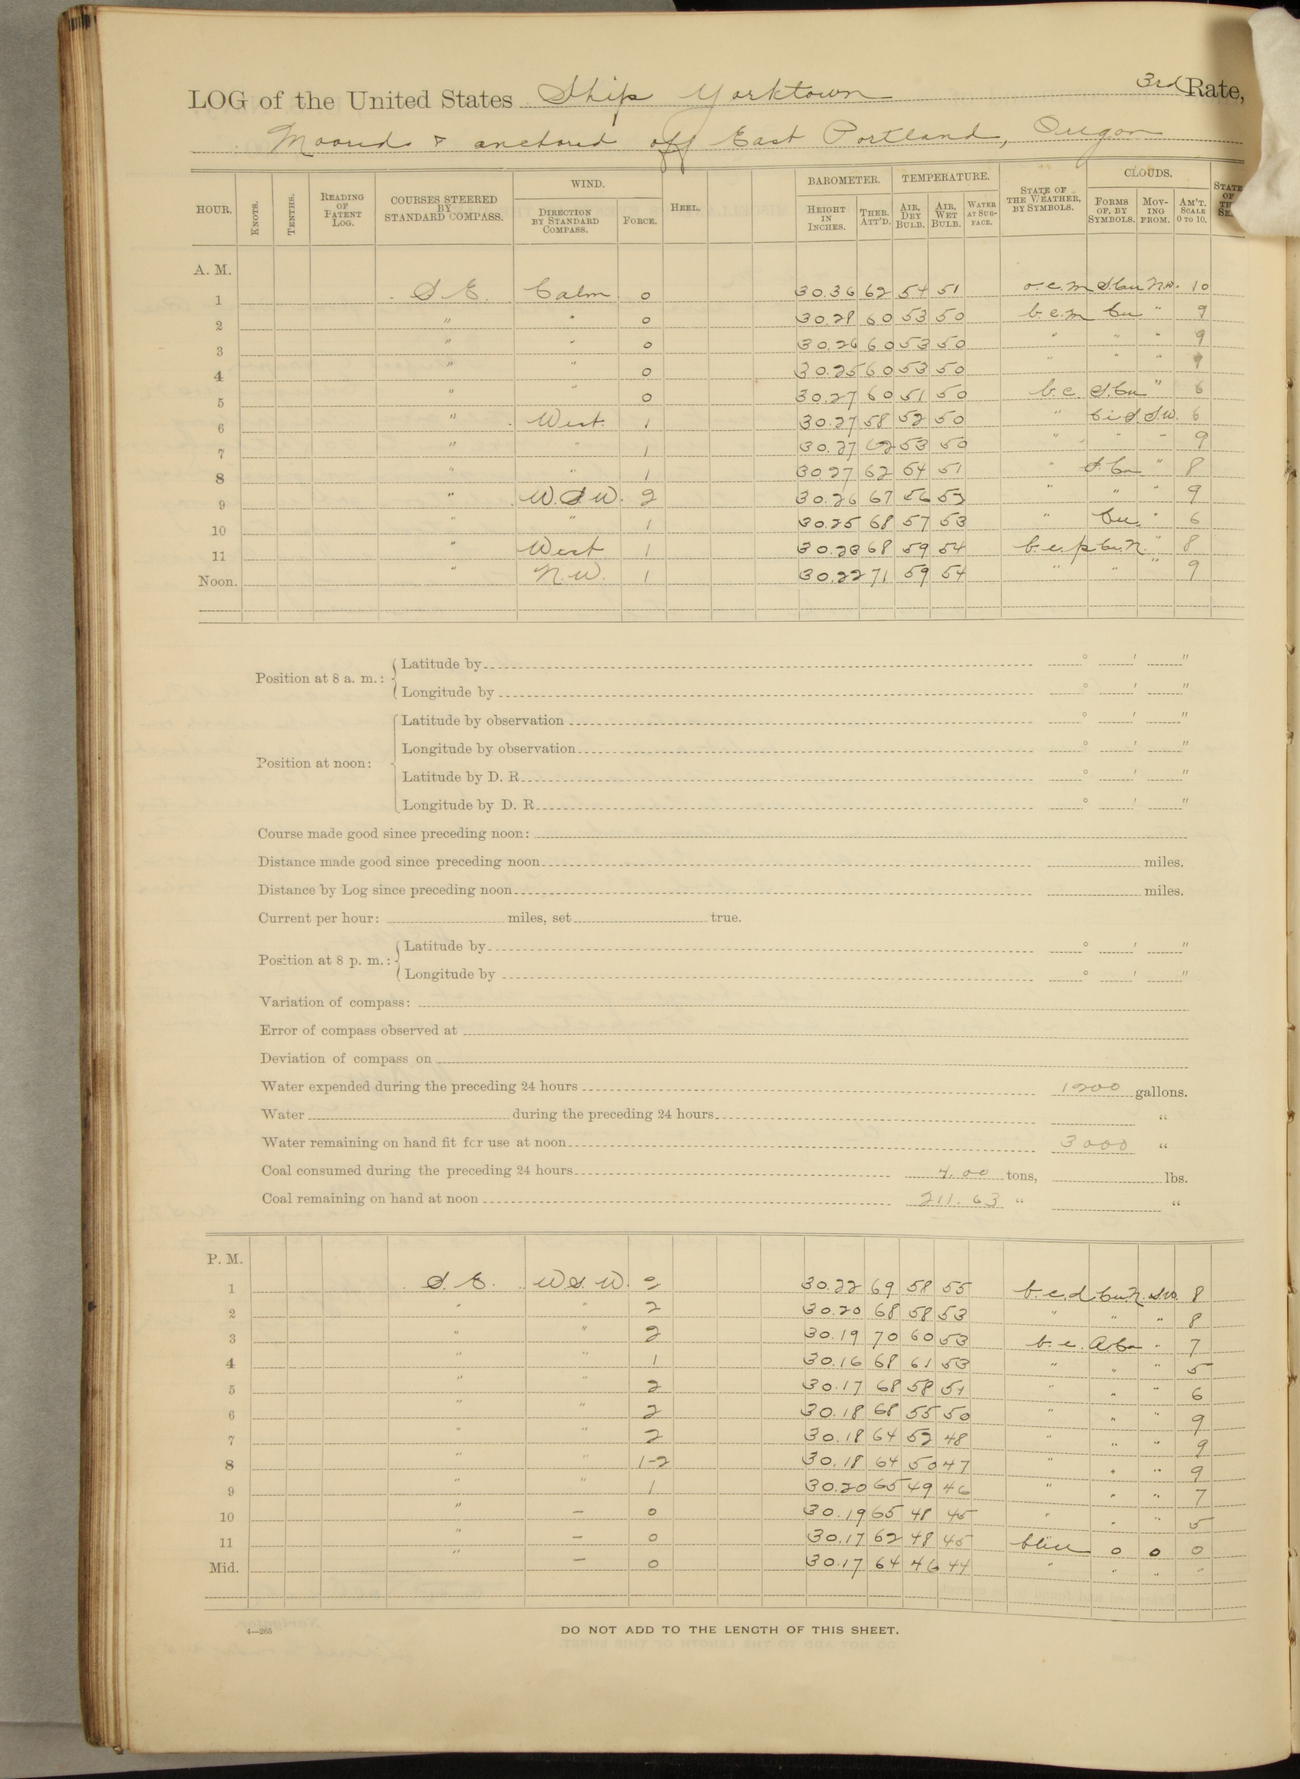 LOG of the United States Ship Yorktown 3rd Rate,
Moored & anchored off East Portland, Oregon
HOUR. KNOTS. TENTHS. READING OF PATENT LOG. COURSES STEERED BY STANDARD COMPASS. WIND. DIRECTION BY STANDARD COMPASS. FORCE. HEEL. BAROMETER. HEIGHT IN INCHES. THER. ATT'D. TEMPERATURE. AIR, DRY BULB. AIR, WET BULB. WATER AT SURFACE. STATE OF THE WEATHER, BY SYMBOLS. CLOUDS. FORMS OF, BY SYMBOLS. MOVING FROM. AM'T. SCALE 0 TO 10. STATE OF
A. M.
1 S E. Calm 0 30.36 62 54 51 o.c.m S.Cu N.W. 10
2 " " 0 30.28 60 53 50 b.c.m Cu " 9
3 " " 0 30.26 60 53 50 " " " 9
4 " " 0 30.25 60 53 50 " " " 9
5 " " 0 30.27 60 51 50 b.c. S.Cu " 6
6 " West. 1 30.27 58 52 50 " Ci S S.W. 6
7 " " 1 30.27 62 53 50 " " " 9
8 " " 1 30.27 62 54 51 " S.Cu " 8
9 " W.S.W. 2 30.26 67 56 52 " " " 9
10 " " 1 30.25 68 57 53 " Cu. " 6
11 " West 1 30.23 68 59 54 b.c.p Cu.N. " 8
Noon. " N.W. 1 30.22 71 59 54 " " " 9
Position at 8 a. m.:
Latitude by ° ' "
Longitude by ° ' "
Position at noon:
Latitude by observation ° ' "
Longitude by observation ° ' "
Latitude by D. R. ° ' "
Longitude by D. R. ° ' "
Course made good since preceding noon:
Distance made good since preceding noon miles.
Distance by Log since preceding noon miles.
Current per hour: miles, set true.
Position at 8 p. m.:
Latitude by ° ' "
Longitude by ° ' "
Variation of compass:
Error of compass observed at
Deviation of compass on
Water expended during the preceding 24 hours 1200 gallons.
Water during the preceding 24 hours "
Water remaining on hand fit for use at noon 3000 "
Coal consumed during the preceding 24 hours 4.00 tons, lbs.
Coal remaining on hand at noon 211.63 " "
P. M.
1 S. E. W.S.W. 2 30.22 69 58 55 b.c.d. Cu.N. S.W. 8
2 " " 2 30.20 68 58 53 " " " 8
3 " " 2 30.19 70 60 53 b.c. A.Cu " 7
4 " " 1 30.16 68 61 53 " " " 5
5 " " 2 30.17 68 58 51 " " " 6
6 " " 2 30.18 68 55 50 " " " 9
7 " " 2 30.18 64 52 48 " " " 9
8 " " 1-2 30.18 64 50 47 " " " 9
9 " " 1 30.20 65 49 46 " " " 7
10 " – 0 30.19 65 48 45 " " " 5
11 " – 0 30.17 62 48 45 blue 0 0 0
Mid. " – 0 30.17 64 46 44 " " " "
4—265
DO NOT ADD TO THE LENGTH OF THIS SHEET.